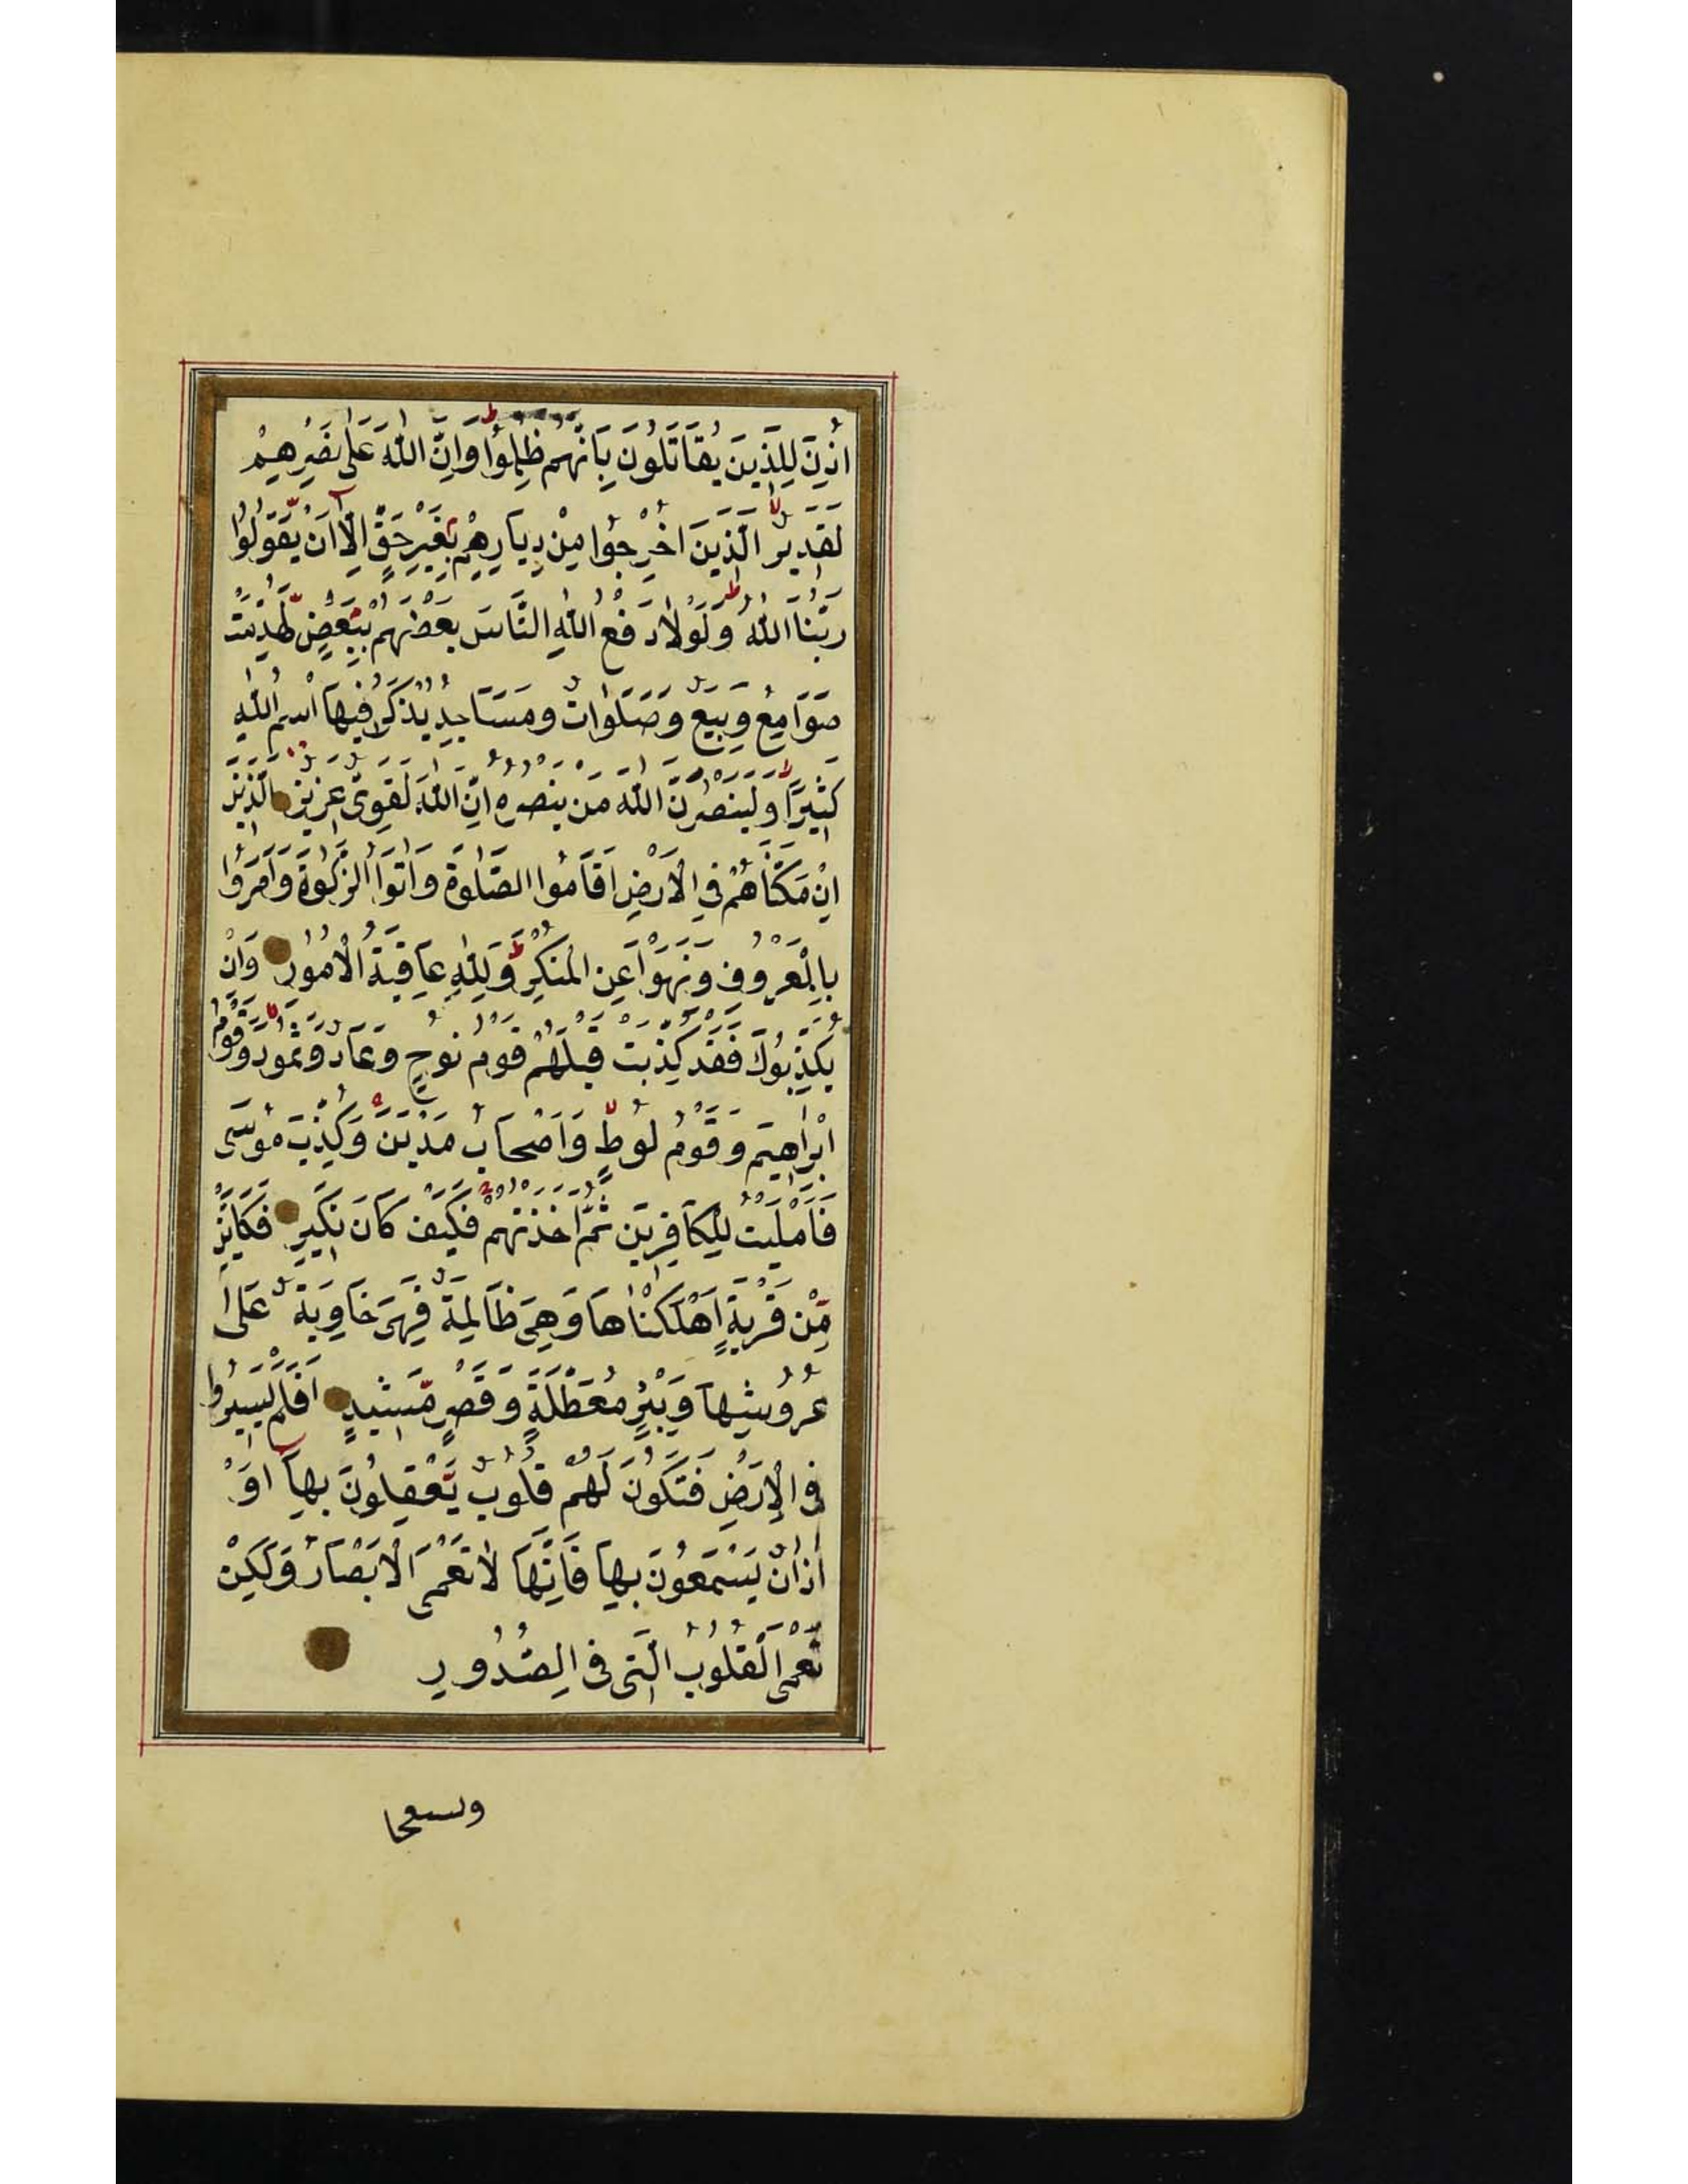 اُذِنَ لِلَّذِينَ يُقَاتَلُونَ بِاَنَّهُمْ ظُلِمُوا ط وَاِنَّ اللّٰهَ عَلٰى نَصْرِهِمْ
لَقَدِيرٌ لا الَّذِينَ اُخْرِجُوا مِنْ دِيَارِهِمْ بِغَيْرِ حَقٍّ اِلَّٓا اَنْ يَّقُولُوا
رَبُّنَا اللّٰهُ ط وَلَوْلَا دَفْعُ اللّٰهِ النَّاسَ بَعْضَهُمْ بِبَعْضٍ لَّهُدِّمَتْ
صَوَامِعُ وَبِيَعٌ وَصَلَوَاتٌ وَمَسَاجِدُ يُذْكَرُ فِيهَا اسْمُ اللّٰهِ
كَثِيرًا ط وَلَيَنْصُرَنَّ اللّٰهُ مَنْ يَنْصُرُهُ اِنَّ اللّٰهَ لَقَوِىٌّ عَزِيزٌ الَّذِينَ
اِنْ مَكَّنَّاهُمْ فِى الْاَرْضِ اَقَامُوا الصَّلٰوةَ وَاٰتَوُا الزَّكٰوةَ وَاَمَرُوا
بِالْمَعْرُوفِ وَنَهَوْا عَنِ الْمُنْكَرِ ط وَلِلّٰهِ عَاقِبَةُ الْاُمُورِ وَاِنْ
يُكَذِّبُوكَ فَقَدْ كَذَّبَتْ قَبْلَهُمْ قَوْمُ نُوحٍ وَعَادٌ وَثَمُودُ لا وَقَوْمُ
اِبْرٰاهِيمَ وَقَوْمُ لُوطٍ لا وَاَصْحَابُ مَدْيَنَ ج وَكُذِّبَ مُوسٰى
فَاَمْلَيْتُ لِلْكَافِرِينَ ثُمَّ اَخَذْتُهُمْ ج فَكَيْفَ كَانَ نَكِيرِ فَكَاَيِّنْ
مِّنْ قَرْيَةٍ اَهْلَكْنَاهَا وَهِىَ ظَالِمَةٌ فَهِىَ خَاوِيَةٌ عَلٰى
عُرُوشِهَا وَبِئْرٍ مُعَطَّلَةٍ وَقَصْرٍ مَّشِيدٍ اَفَلَمْ يَسِيرُوا
فِى الْاَرْضِ فَتَكُونَ لَهُمْ قُلُوبٌ يَّعْقِلُونَ بِهَآ اَوْ
اٰذَانٌ يَسْمَعُونَ بِهَا فَاِنَّهَا لَا تَعْمَى الْاَبْصَارُ وَلٰكِنْ
تَعْمَى الْقُلُوبُ الَّتِى فِى الصُّدُورِ